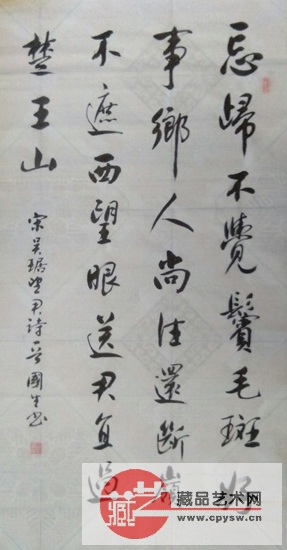 忘歸不覺鬢毛斑好
事鄉人尚往還斷嶺
不遮西望眼送君直過
楚王山
宋吴琚君詩國生书
藏
藏品艺术网
www.cpysw.cn